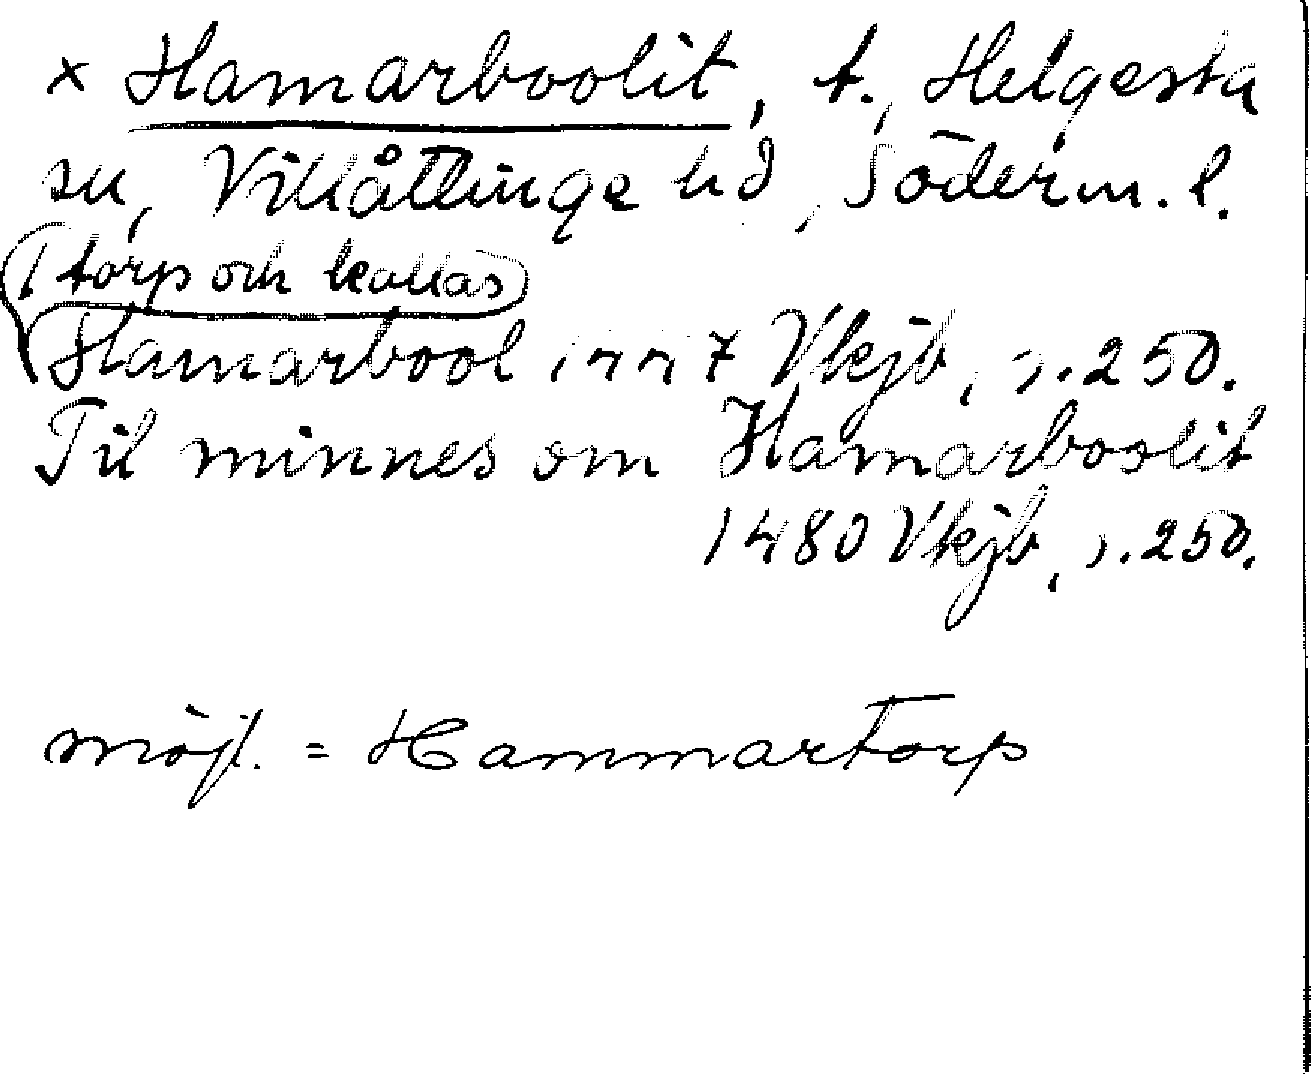 x Hamarboolit, t., Helgesta
sn, Villåttinge hd, Söderm. l.
1 torp och kallas
Hamarbool 1447 Vkjb, s. 250.
Til minnes om Hamarboolit
1480 Vkjb, s. 250.
möjl. = Hammartorp